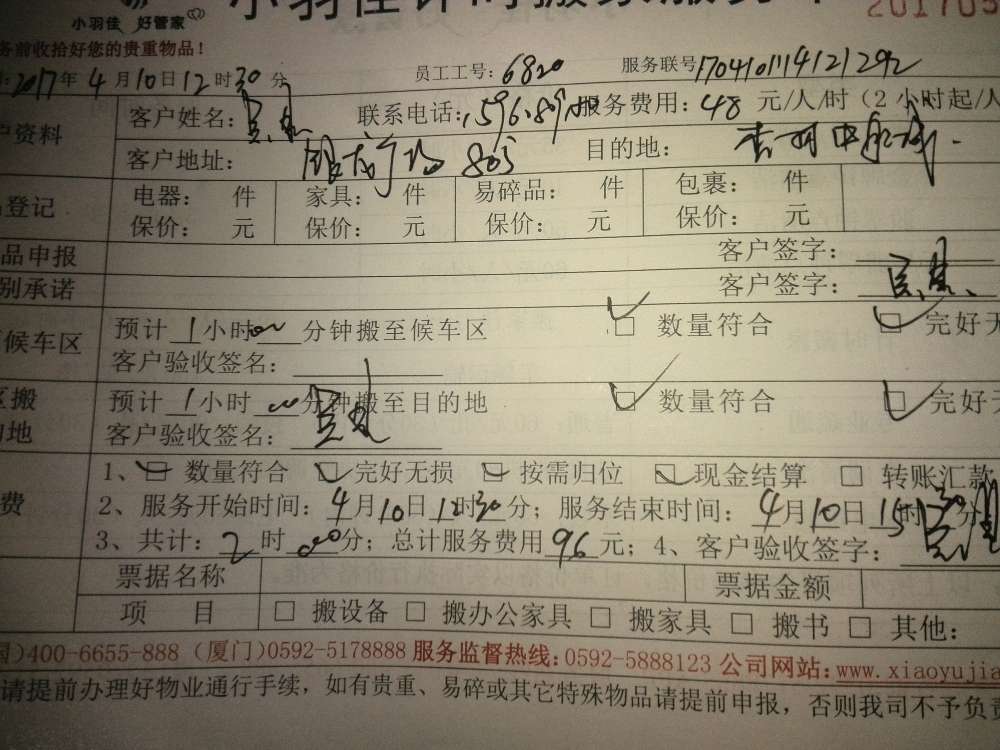 小羽佳 好管家
小羽佳计时搬家服务单
201705
务前收拾好您的贵重物品！
2017年4月10日12时30分 员工工号：6820 服务联号170410114121292
户资料 客户姓名： 联系电话：1596 服务费用：48元/人/时（2小时起/人
客户地址： 805 目的地：
登记 电器： 件 家具： 件 易碎品： 件 包裹： 件
保价： 元 保价： 元 保价： 元 保价： 元
品申报 客户签字：
别承诺 客户签字：
候车区 预计1小时00分钟搬至候车区 □ 数量符合 □ 完好无
客户验收签名：
区搬 预计1小时00分钟搬至目的地 □ 数量符合 □ 完好无
的地 客户验收签名：
1、□ 数量符合 □ 完好无损 □ 按需归位 □ 现金结算 □ 转账汇款
费 2、服务开始时间：4月10日1时30分；服务结束时间：4月10日15时30分
3、共计：2时00分；总计服务费用96元；4、客户验收签字：
票据名称 票据金额
项 目 □ 搬设备 □ 搬办公家具 □ 搬家具 □ 搬书 □ 其他：
国）400-6655-888（厦门）0592-5178888 服务监督热线：0592-5888123 公司网站：www.xiaoyujia
请提前办理好物业通行手续，如有贵重、易碎或其它特殊物品请提前申报，否则我司不予负责